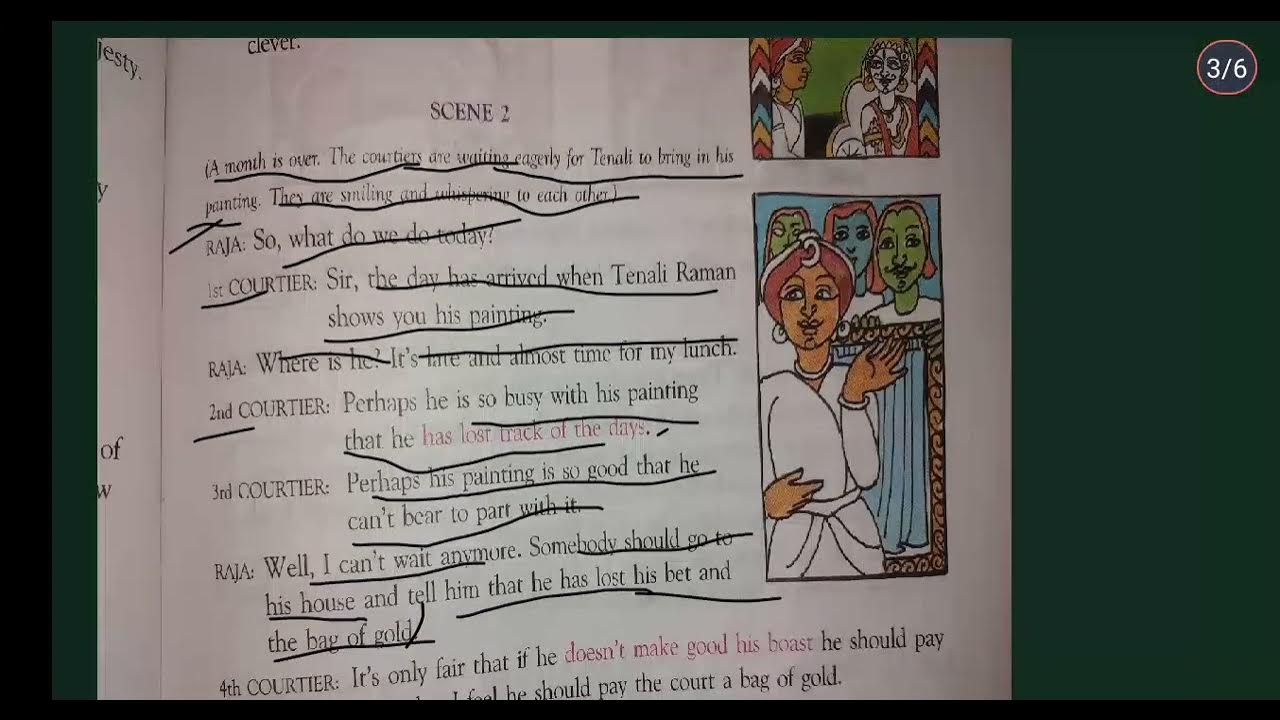 jesty.
clever.
3/6
SCENE 2
(A month is over. The courtiers are waiting eagerly for Tenali to bring in his
painting. They are smiling and whispering to each other.)
y
RAJA: So, what do we do today?
1st COURTIER: Sir, the day has arrived when Tenali Raman
shows you his painting.
RAJA: Where is he? It's late and almost time for my lunch.
2nd COURTIER: Perhaps he is so busy with his painting
that he has lost track of the days.
of
3rd COURTIER: Perhaps his painting is so good that he
w
can't bear to part with it.
RAJA: Well, I can't wait anymore. Somebody should go to
his house and tell him that he has lost his bet and
the bag of gold.
4th COURTIER: It's only fair that if he doesn't make good his boast he should pay
I feel he should pay the court a bag of gold.